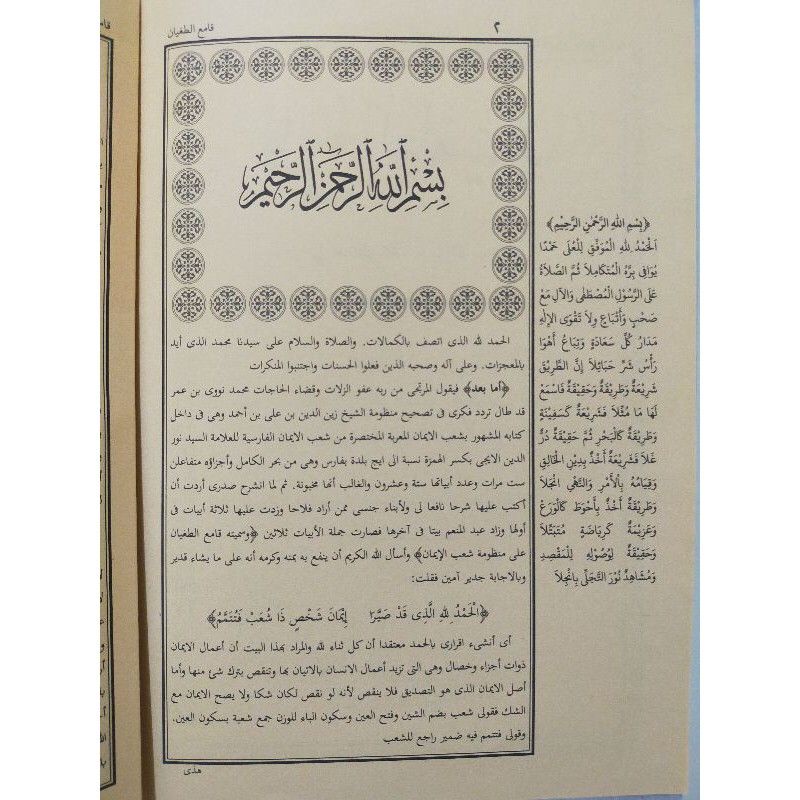 ٢
قامع الطغيان
بِسْمِ اللهِ الرَّحْمَنِ الرَّحِيْمِ
الحمد لله الذى اتصف بالكمالات. والصلاة والسلام على سيدنا محمد الذى أيد
بالمعجزات. وعلى آله وصحبه الذين فعلوا الحسنات واجتنبوا المنكرات
﴿أما بعد﴾ فيقول المرتجى من ربه عفو الزلات وقضاء الحاجات محمد نووى بن عمر
قد طال تردد فكرى فى تصحيح منظومة الشيخ زين الدين بن على بن أحمد وهى فى داخل
كتابه المشهور بشعب الايمان المعربة المختصرة من شعب الايمان الفارسية للعلامة السيد نور
الدين الايجى بكسر الهمزة نسبة الى ايج بلدة بفارس وهى من بحر الكامل وأجزاؤه متفاعلن
ست مرات وعدد أبياتها ستة وعشرون والغالب أنها مخبونة. ثم لما انشرح صدرى أردت أن
أكتب عليها شرحا نافعا لى ولأبناء جنسى ممن أراد فلاحا وزدت عليها ثلاثة أبيات فى
أولها وزاد عبد المنعم بيتا فى آخرها فصارت جملة الأبيات ثلاثين ﴿وسميته قامع الطغيان
على منظومة شعب الإيمان﴾ وأسأل الله الكريم أن ينفع به بمنه وكرمه أنه على ما يشاء قدير
وبالاجابة جدير آمين فقلت:
﴿الْحَمْدُ لِلهِ الَّذِى قَدْ صَيَّرَا إِيْمَانَ شَخْصٍ ذَا شُعَبْ فَتُتَمَّمُ﴾
أى أنشىء اقرارى بالحمد معتقدا أن كل ثناء لله والمراد بهذا البيت أن أعمال الايمان
ذوات أجزاء وخصال وهى التى تزيد أعمال الانسان بالاتيان بها وتنقص بترك شئ منها وأما
أصل الايمان الذى هو التصديق فلا ينقص لأنه لو نقص لكان شكا ولا يصح الايمان مع
الشك فقولى شعب بضم الشين وفتح العين وسكون الباء للوزن جمع شعبة بسكون العين.
وقولى فتتمم فيه ضمير راجع للشعب
هذى
﴿بِسْمِ اللهِ الرَّحْمٰنِ الرَّحِيْمِ﴾
اَلْحَمْدُ لِلهِ الْمُوَفِّقِ لِلْعُلَى حَمْدًا
يُوَافِى بِرَّهُ الْمُتَكَامِلاَ ثُمَّ الصَّلاَةُ
عَلَى الرَّسُوْلِ الْمُصْطَفَى وَالآلِ مَعْ
صَحْبٍ وَأَتْبَاعٍ وِلاَ تَقْوَى الإِلٰهِ
مَدَارُ كُلِّ سَعَادَةٍ وَتِبَاعُ أَهْوَا
رَأْسُ شَرِّ حَبَائِلاَ إِنَّ الطَّرِيْقَ
شَرِيْعَةٌ وَطَرِيْقَةٌ وَحَقِيْقَةٌ فَاسْمَعْ
لَهَا مَا مُثِّلاَ فَشَرِيْعَةٌ كَسَفِيْنَةٍ
وَطَرِيْقَةٌ كَالْبَحْرِ ثُمَّ حَقِيْقَةٌ دُرٌّ
غَلاَ فَشَرِيْعَةٌ أَخْذٌ بِدِيْنِ الْخَالِقِ
وَقِيَامُهُ بِالْأَمْرِ وَالنَّهْىِ انْجَلاَ
وَطَرِيْقَةٌ أَخْذٌ بِأَحْوَطَ كَالْوَرَعْ
وَعَزِيْمَةٌ كَرِيَاضَةٍ مُتَبَتِّلاَ
وَحَقِيْقَةٌ لِوُصُوْلِهِ لِلْمَقْصِدِ
وَمُشَاهِدٌ نُوْرَ التَّجَلِّى بِانْجِلاَ